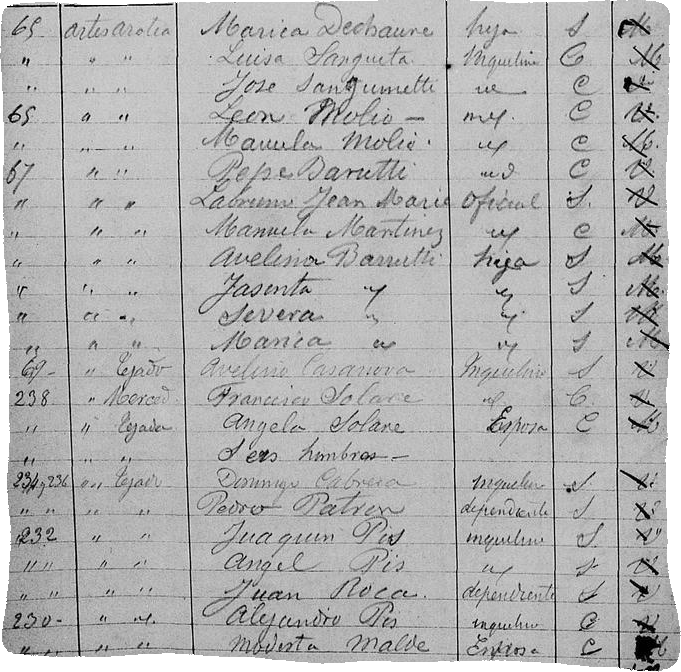 65 artes arotea Marica Dechaure hija S M
" " " Luisa Sangueta Inquelino C M
" " " Jose Sanguinetti " C V
65 " " Leon Molio — " C V
" " " Manuela Molio " C M
67 " " Pepe Barutti " C V
" " " Jean Marie Oficial S. V
" " " Manuela Martinez " C M
" " " Avelina Barrutti hija S M
" " " Jasinta " " S M
" " " Severa " " S M
" " " Marica " " S M
69 - " Tejado Avelino Casanova Inquelino S V
238 " Merced Francisco Solare " C V
" " Tejada Angela Solare Esposa C M
" " " Seis hombres —
234 y 236 " " Tejado Domingo Cabrera inquelino S. V
" " " " Pedro Patron dependiente S V
232 " " Juaquin Pis inquelino S V
" " " " Angel Pis " S V
" " " " Juan Roca. dependiente S V
230 - " " Alejandro Pis inquelino C V
" " " " Modesta Malde Esposa C M